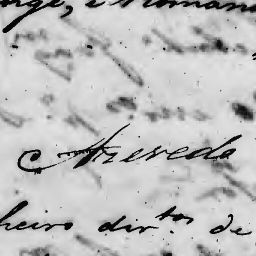 orge, e Romana
Azevedo
heiro dir.tos de